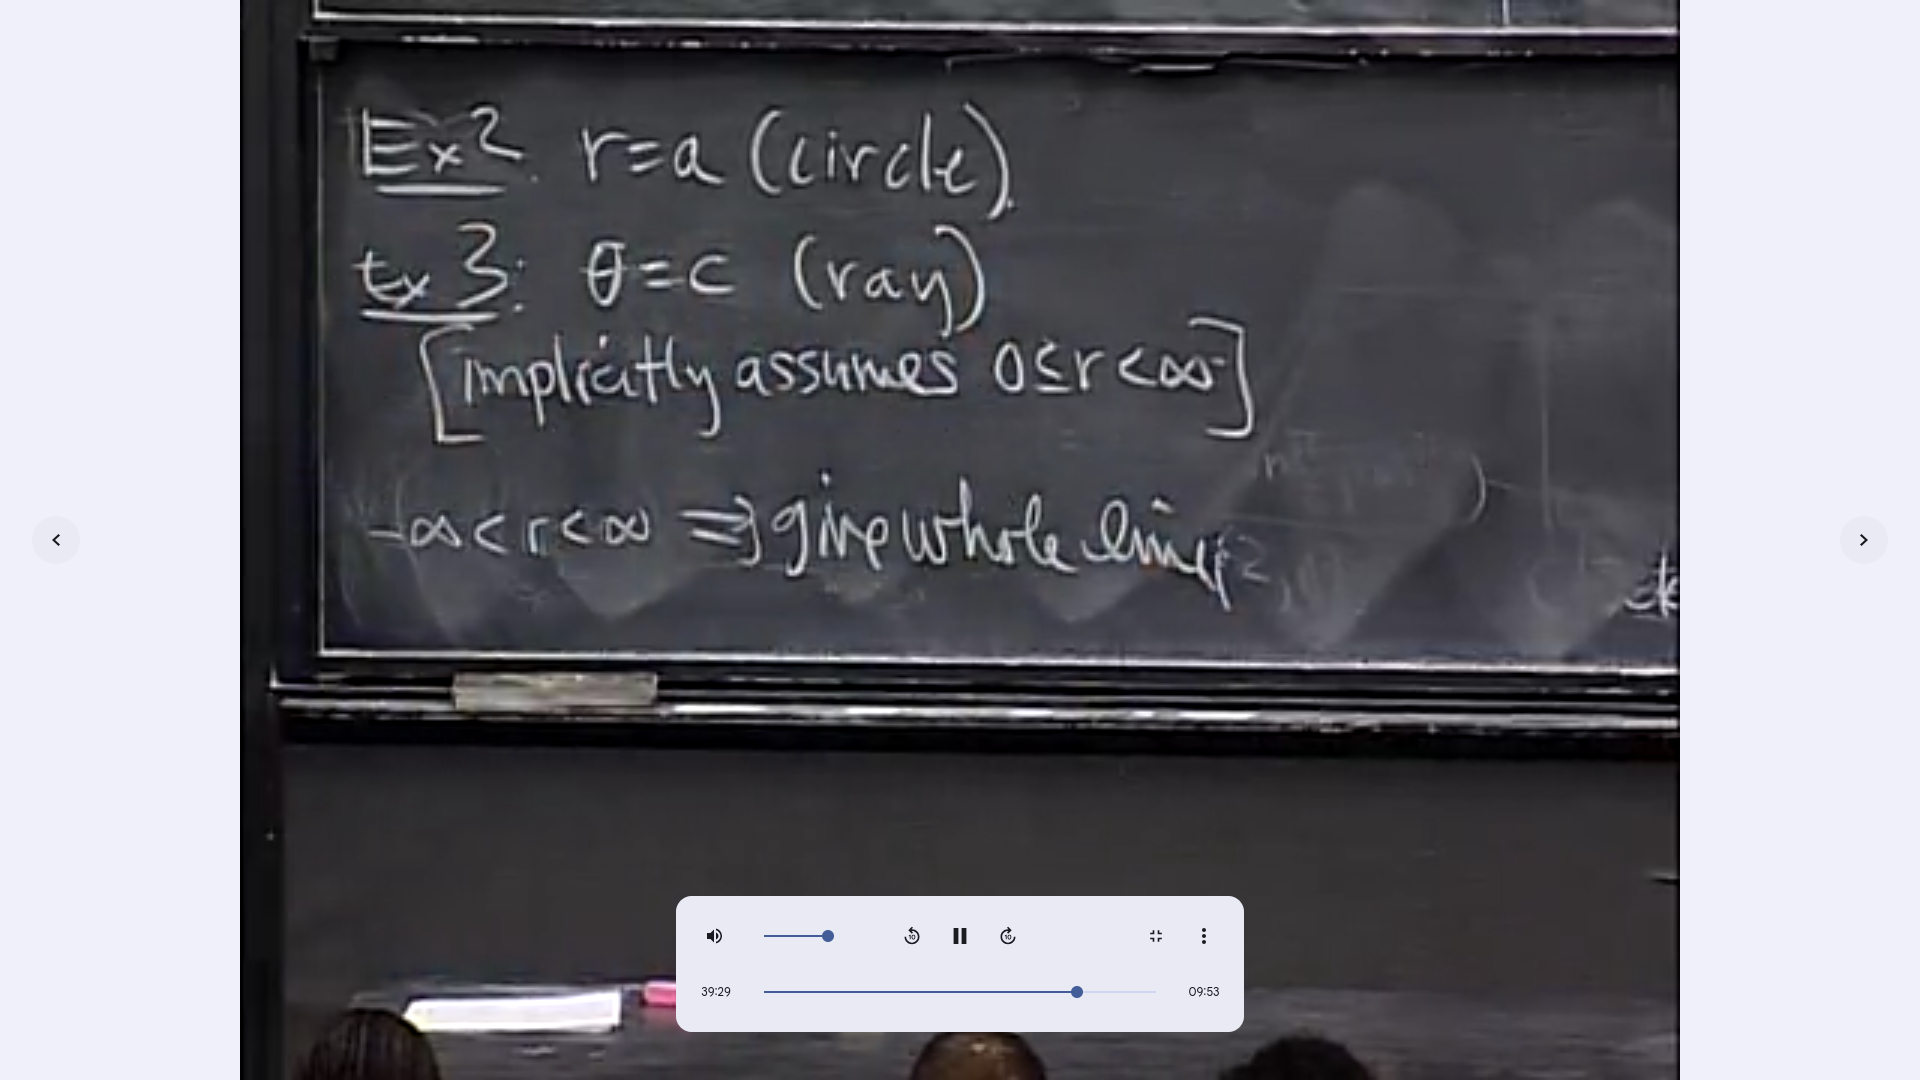 Ex2. r=a (circle).
Ex 3: θ=c (ray)
[implicitly assumes 0≤r<∞]
-∞<r<∞ ⇒ give whole line
10
10
39:29
09:53